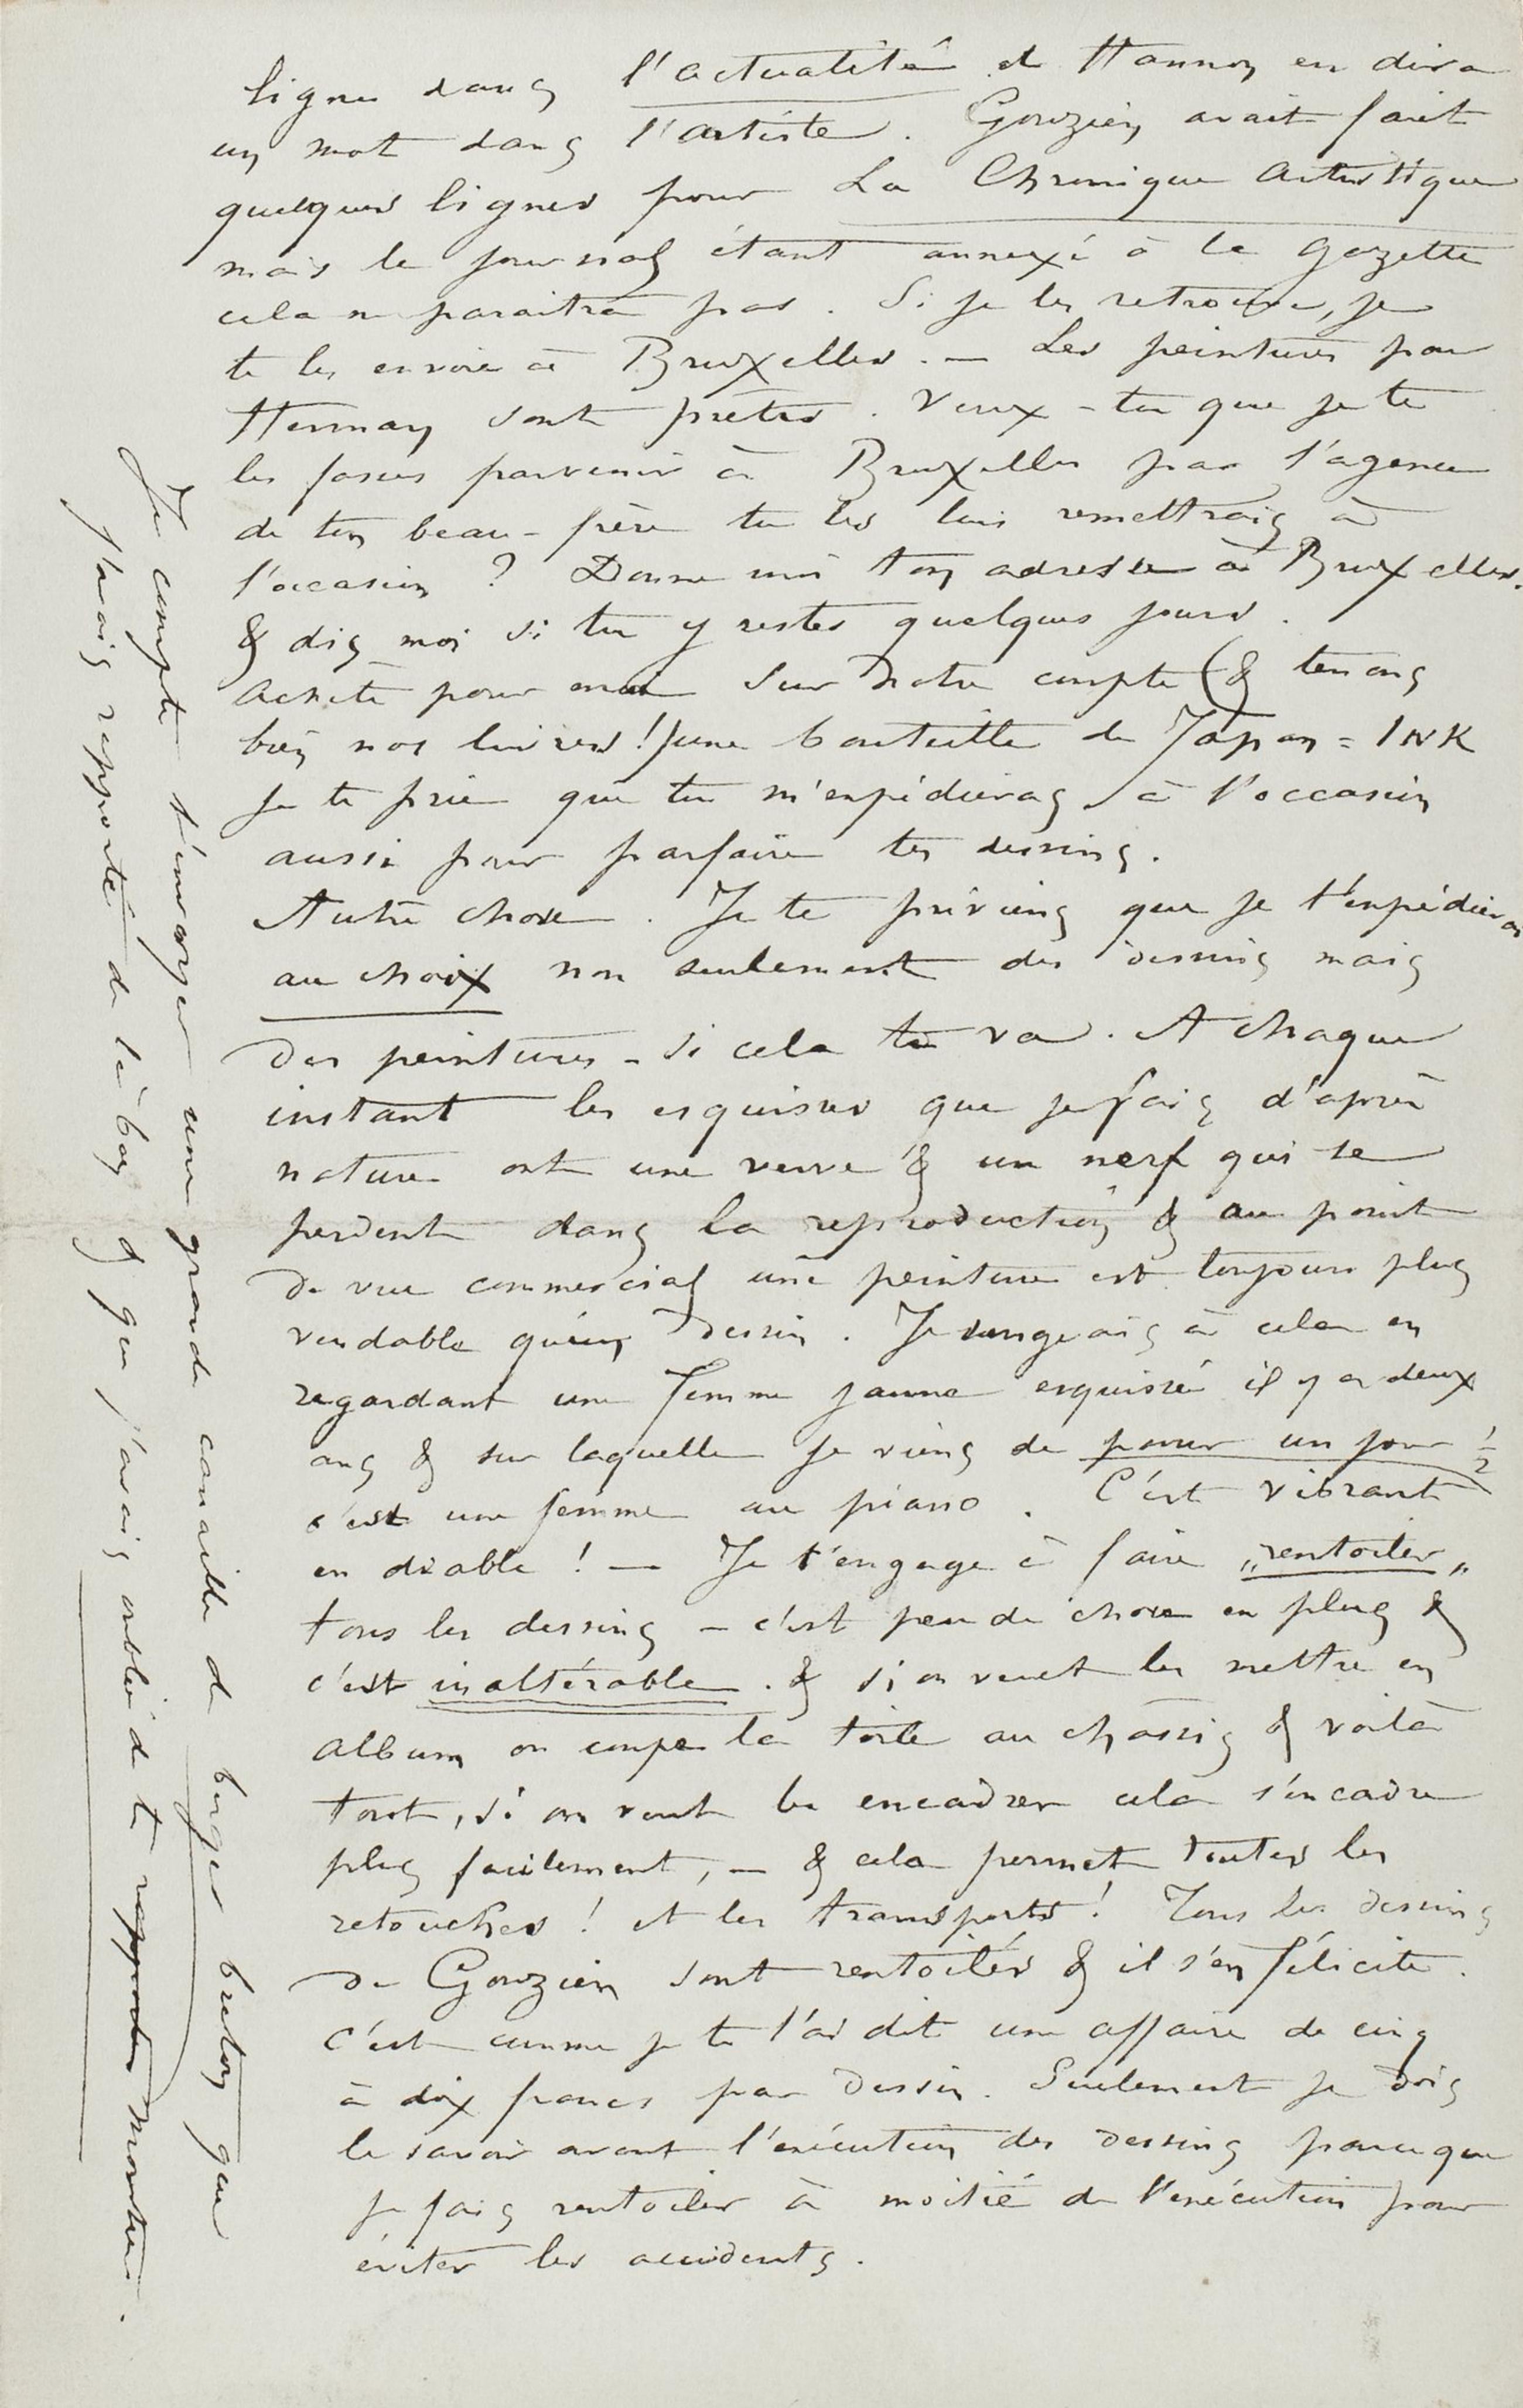 lignes dans l'actualité et Hannon en dira
un mot dans l'artiste. Gouzien avait fait
quelques lignes pour La Chronique Artistique
mais le journal étant annexé à la gazette
cela ne paraitra pas. Si je les retrouve, je
te les envoie à Bruxelles. — Les peintures pour
Hermay sont prêtes. Veux-tu que je te
les fasses parvenir à Bruxelles par l'agence
de ton beau-frère tu les lui remettrais à
l'occasion ? Donne moi ton adresse à Bruxelles.
& dis moi si tu y restes quelques jours.
Achète pour moi sur notre compte (& tenons
bien nos livres!) une bouteille de Japan = INK
je te prie que tu m'expédieras à l'occasion
aussi pour parfaire tes dessins.
Autre chose. Je te préviens que je t'expédierai
au choix non seulement des dessins mais
des peintures - si cela te va. A chaque
instant les esquisses que je fais d'après
nature ont une verve & un nerf qui se
perdent dans la reproduction & au point
de vue commercial une peinture est toujours plus
vendable qu'un dessin. Je songeais à cela en
regardant une femme jaune esquissée il y a deux
ans & sur laquelle je viens de passer un jour ½
c'est une femme au piano. C'est vibrant
en diable ! — Je t'engage à faire „rentoiler„
tous les dessins - c'est peu de chose en plus &
c'est inaltérable. & si on veut les mettre en
album on coupe la toile au chassis & voilà
tout, si on veut les encadrer cela s'encadre
plus facilement, — & cela permet toutes les
retouches ! et les transports ! Tous les dessins
de Gouzien sont rentoilés & il s'en félicite.
C'est comme je te l'ai dit une affaire de cinq
à dix francs par dessin. Seulement je dois
le savoir avant l'exécution des dessins parce que
je fais rentoiler à moitié de l'exécution pour
éviter les accidents.
Je compte t'envoyer une grande canaille de berger breton que
j'avais rapporté de là bas & que j'avais oublié de te rapporter montrer.